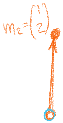 m₂ = (1
2)